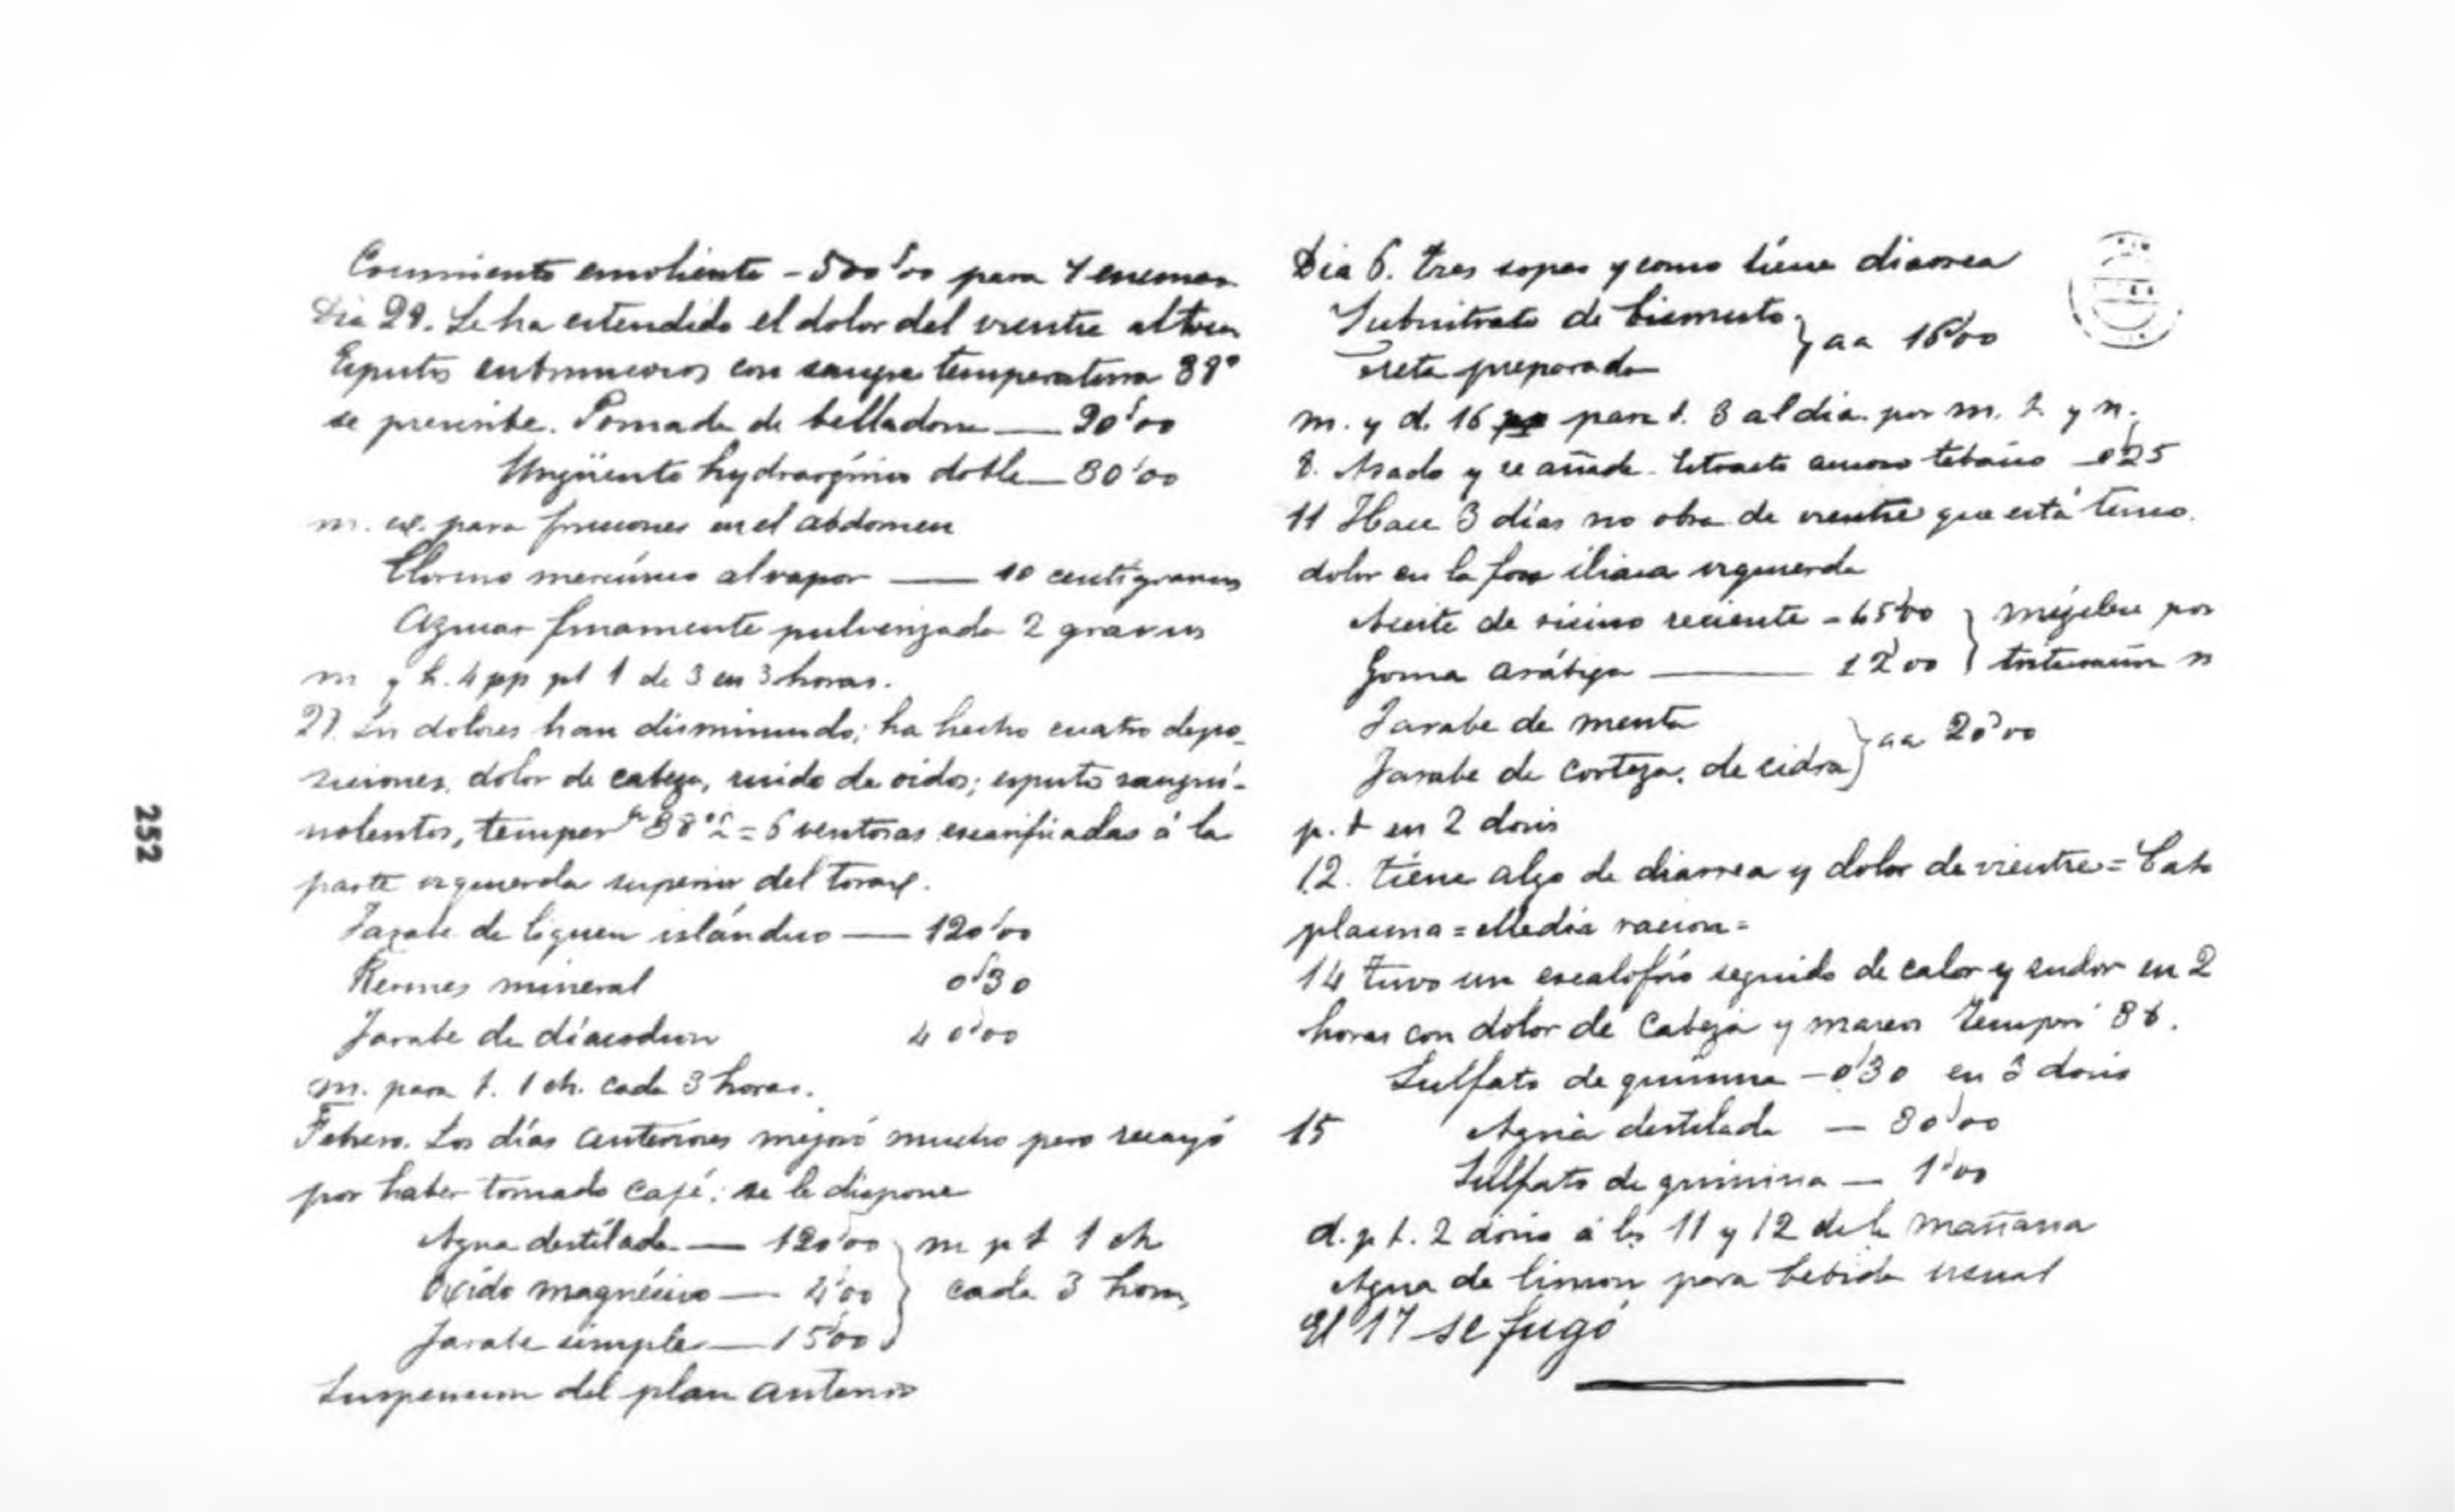 Cocimiento emoliente - 500'00 para 4 enemas
Dia 29. Se ha estendido el dolor del vientre al torax
Esputos entremueros con sangre temperatura 38°
se prescribe. Pomada de belladona — 20'00
Ungüento hydrargírico doble — 30'00
m. ex. para fricciones en el abdomen
Cloruro mercúrico al vapor — 10 centigramos
Azucar finamente pulverizada 2 gramos
m y h. 4 pp pt 1 de 3 en 3 horas.
Los dolores han disminuido; ha hecho cuatro depo-
siciones, dolor de cabeza, ruido de oidos; esputos sangui-
nolentos, temper 38° = 6 ventosas escarificadas á la
parte izquierda superior del torax.
Jarabe de liquen islándico — 120'00
Kermes mineral 0'30
Jarabe de diacodion 40'00
m. para t. 1 ch. cada 3 horas.
Febrero. Los días anteriores mejoró mucho pero recayó
por haber tomado café; se le dispone
Agua destilada — 120'00 m p t 1 ch
Oxido magnésico — 4'00 cada 3 horas
Jarabe simple — 15'00
Suspension del plan anterior
252
Dia 6. tres sopas y como tiene diarrea
Subnitrato de bismuto
Creta preparada } aa 16'00
m. y d. 16 pp para t. 3 al dia por m. t. y n.
8. Asado y se añade Estracto acuoso tebaico — 0'25
11 Hace 3 días no obra de vientre que está tenso.
dolor en la fosa iliaca izquierda
Aceite de ricino reciente - 45'00 } mézclese por
Goma arábiga — 12'00 trituracion n
Jarabe de menta
Jarabe de corteza de cidra } aa 20'00
p. t en 2 dosis
12. tiene algo de diarrea y dolor de vientre = Cata
plasma = Media racion =
14 tuvo un escalofrio seguido de calor y sudor en 2
horas con dolor de cabeza y mareos
Sulfato de quinina - 0'30 en 3 dosis
15 Agua destilada — 30'00
Sulfato de quinina — 1'00
d. p t. 2 dosis á las 11 y 12 de la mañana
Agua de limon para bebida usual
El 17 se fugó